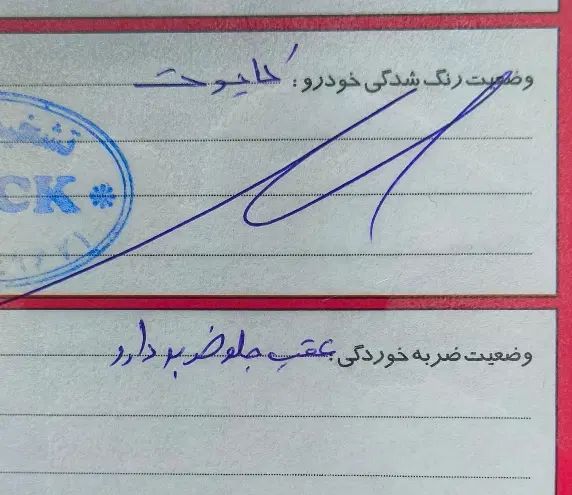 وضعیت رنگ شدگی خودرو: کاپوت
تشخیص
CK *
وضعیت ضربه خوردگی: عقب جلو ضربه دارد